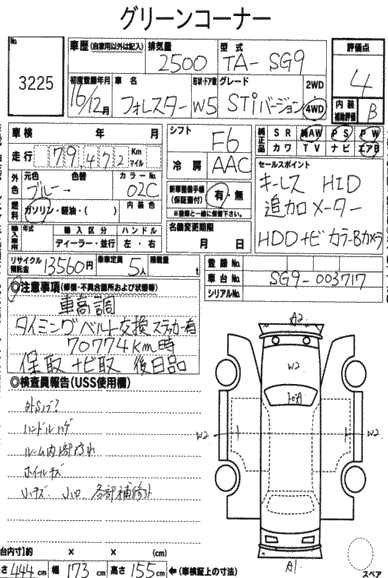 グリーンコーナー
No.
3225
車歴 (自家用以外は記入)
排気量
2500
型式
TA-SG9
評価点
4
初度登録年月
16/12月
車名
フォレスター
形状・ドア数
W5
グレード
STiバージョン
2WD
4WD
内装
補助評価
B
車検
年 月
走行
79472
Km
マイル
シフト
F6
冷房
AAC
純正品
SR 純AW PS PW
カワ TV ナビ エアB
外色
元色
ブルー
色替
カラーNo.
02C
燃料
ガソリン・軽油・( )
内装色
新車整備手帳
(保証書付)
有・無
※登録と一緒に保管下さい
セールスポイント
キーレス HID
追加メーター
HDDナビ カラーBカメラ
輸入車
年式
輸入区分
ディーラー・並行
ハンドル
左・右
名義変更期限
月 日
リサイクル
預託金
13560円
乗車定員
5人
積載量
t
登録No.
車台No.
SG9-003717
シリアルNo.
◎注意事項(修復・不具合箇所および状態等)
車高調
タイミングベルト交換ステッカー有
70774km時
保取 ナビ取 後日品
◎検査員報告(USS使用欄)
ハンドルスレ
ルーム内部汚れ
ホイールキズ
小キズ 小凹 各部補修跡
A2
W2
W2
W2
A1
スペア
(約)
× × (cm)
444cm
幅
173cm
高さ
155cm
←(車検証上の寸法)